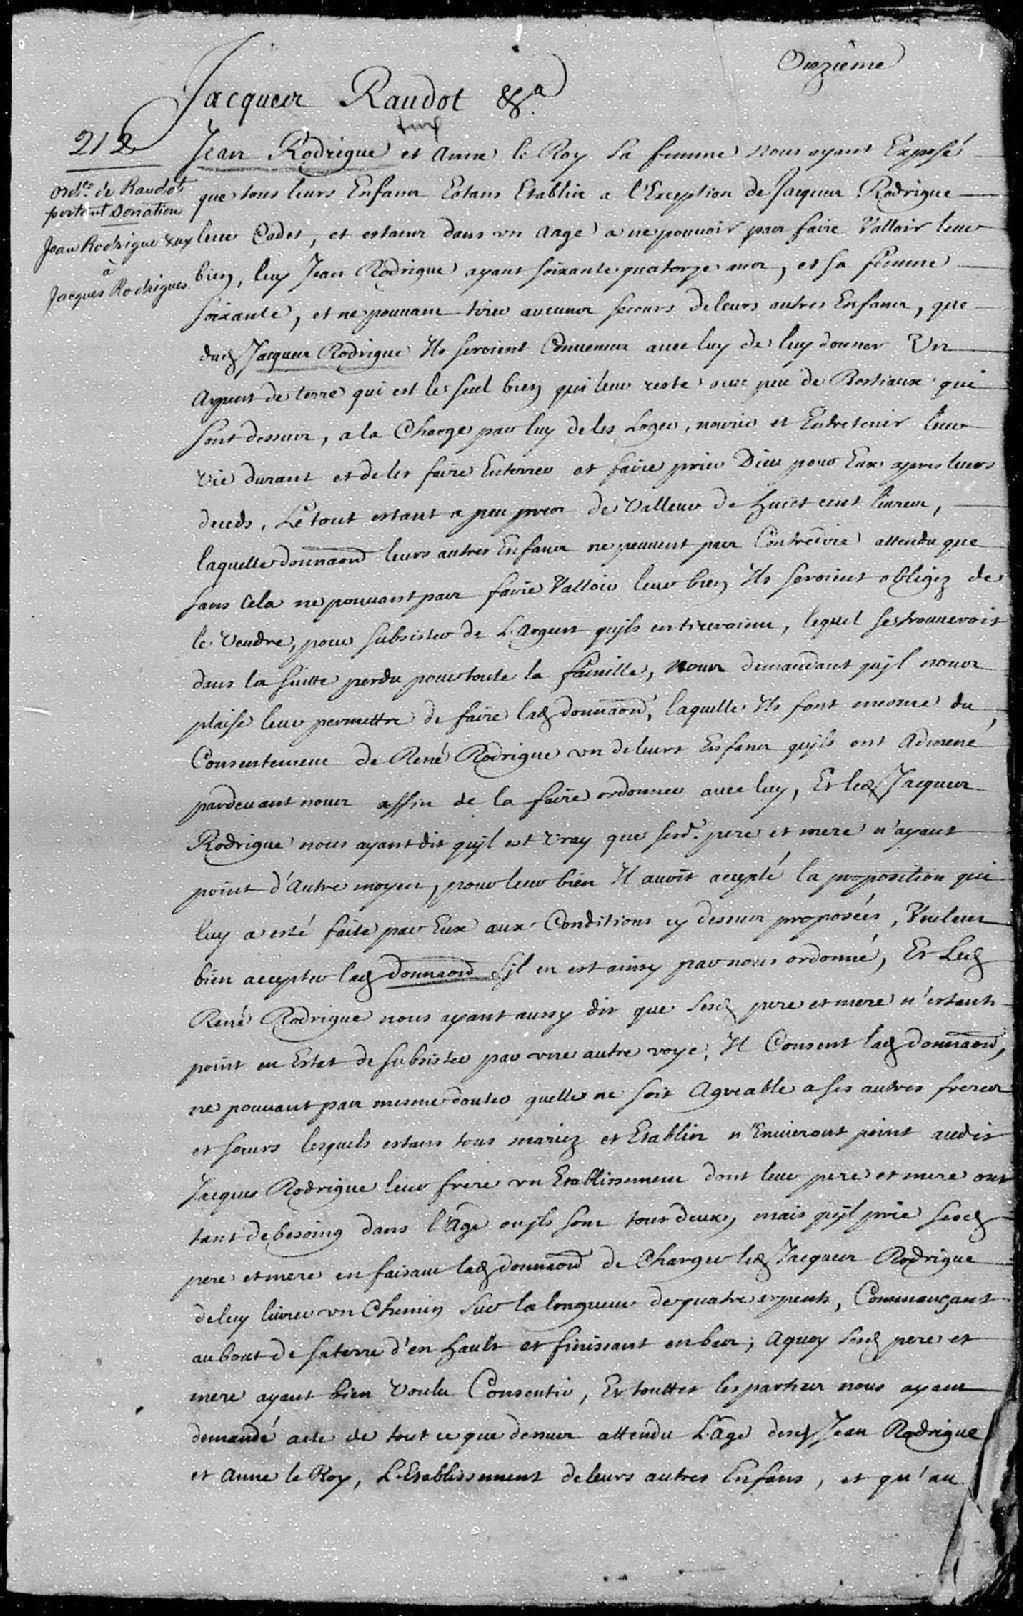 Onzième
Jacques Raudot &a.
212
Ordce de Raudot
portant Donation
Jean Rodrigue & ux
à
Jacques Rodrigues
Jean Rodrigue et Anne le Roy Sa femme nous ayant Exposé
que tous leurs Enfans Estans Etablis a l'Exception de Jacques Rodrigue
leur Cadet, et estans dans un aage a ne pouvoir pas faire Valloir leur
bien, luy Jean Rodrigue ayant soixante quatorze ans, et sa femme
soixante, et ne pouvans tirer aucuns secours de leurs autres Enfans, que
dud Jacques Rodrigue Ils seroient Convenus avec luy de luy donner Un
Arpent de terre qui est le seul bien qui leur reste avec peu de Bestiaux qui
sont dessus, a la Charge par luy de les Loger, nourir et Entretenir leur
vie durant et de les faire Enterrer et faire prier Dieu pour Eux apres leurs
deceds, Le tout estant a peu pres de Valleur de huict cent livres,
laquelle donnaon leurs autres Enfans ne peuvent pas Contredire attendu que
sans cela ne pouvant pas faire Valloir leur bien Ils seroient obligez de
le Vendre, pour subsister de L'argent qu'ils en tireroient, lequel se trouveroit
dans la suitte perdu pour toute la famille, nous demandant qu'il nous
plaise leur permettre de faire lad donnaon, laquelle Ils font mesme du
Consentement de René Rodrigue un de leurs Enfans qu'ils ont Admené
pardevant nous affin de la faire ordonner avec luy, Et led Jacques
Rodrigue nous ayant dit qu'il est vray que sesd. pere et mere n'ayant
point d'Autre moyen, pour leur bien Il auoit accepté la proposition qui
luy a esté faite par Eux aux Conditions cy dessus proposées, Voulant
bien accepter lad donnaon s'il en est ainsy par nous ordonné, Et Led
René Rodrigue nous ayant aussy dit que sesd pere et mere n'estants
point en Estat de subsister par une autre voye, Il Consent lad donnaon,
ne pouvant pas mesme douter quelle ne soit Agreable a ses autres freres
et soeurs lesquels estans tous mariez et Etablis n'Envieront point audit
Jacques Rodrigue leur frere un Etablissement dont leur pere et mere ont
tant de besoing dans l'Age ou ils sont tous deux, mais qu'il prie sesd
pere et mere en faisant lad donnaon de Charger led Jacques Rodrigue
de luy livrer un Chemin sur la longueur de quatre arpents, Commançant
au bout de sa terre d'en hault et finissant en bas; Aquoy sesd pere et
mere ayant bien voulu Consentir, Et touttes les parties nous ayant
demandé acte de tout ce que dessus attendu L'âge desd Jean Rodrigue
et Anne le Roy, L'Etablissement de leurs autres Enfans, et qu'au